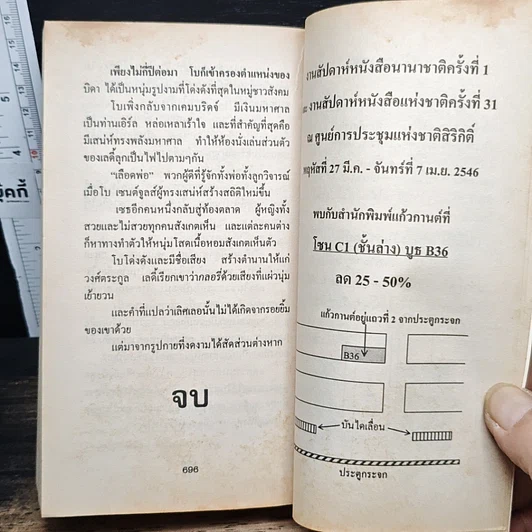 เพียงไม่กี่ปีต่อมา โบก็เข้าครองตำแหน่งของ
บิดา ได้เป็นหนุ่มรูปงามที่โด่งดังที่สุดในหมู่ชาวสังคม
โบเพิ่งกลับจากเคมบริดจ์ มีเงินมหาศาล
เป็นท่านเอิร์ล หล่อเหลาเร้าใจ และที่สำคัญที่สุดคือ
มีเสน่ห์ทรงพลังมหาศาล ทำให้ห้องนั่งเล่นส่วนตัว
ของเลดี้ลุกเป็นไฟไปตามๆกัน
“เลือดพ่อ” พวกผู้ดีที่รู้จักทั้งพ่อทั้งลูกวิจารณ์
เมื่อโบ เซนต์จูลส์ผู้ทรงเสน่ห์สร้างสถิติใหม่ขึ้น
เซธอีกคนหนึ่งกลับสู่ท้องตลาด ผู้หญิงทั้ง
สวยและไม่สวยทุกคนสังเกตเห็น และแต่ละคนต่าง
ก็หาทางทำตัวให้หนุ่มโสดเนื้อหอมสังเกตเห็นตัว
โบโด่งดังและมีชื่อเสียง สร้างตำนานให้แก่
วงศ์ตระกูล เลดี้เรียกเขาว่ากลอรี่ด้วยเสียงที่แผ่วนุ่ม
เย้ายวน
และคำที่แปลว่าเลิศเลอนั้นไม่ได้เกิดจากรอยยิ้ม
ของเขาด้วย
แต่มาจากรูปกายที่งดงามได้สัดส่วนต่างหาก
จบ
696
งานสัปดาห์หนังสือนานาชาติครั้งที่ 1
งานสัปดาห์หนังสือแห่งชาติครั้งที่ 31
ณ ศูนย์การประชุมแห่งชาติสิริกิติ์
พฤหัสที่ 27 มี.ค. - จันทร์ที่ 7 เม.ย. 2546
พบกับสำนักพิมพ์แก้วกานต์ที่
โซน C1 (ชั้นล่าง) บูธ B36
ลด 25 - 50%
แก้วกานต์อยู่แถวที่ 2 จากประตูกระจก
B36
บันไดเลื่อน
ประตูกระจก